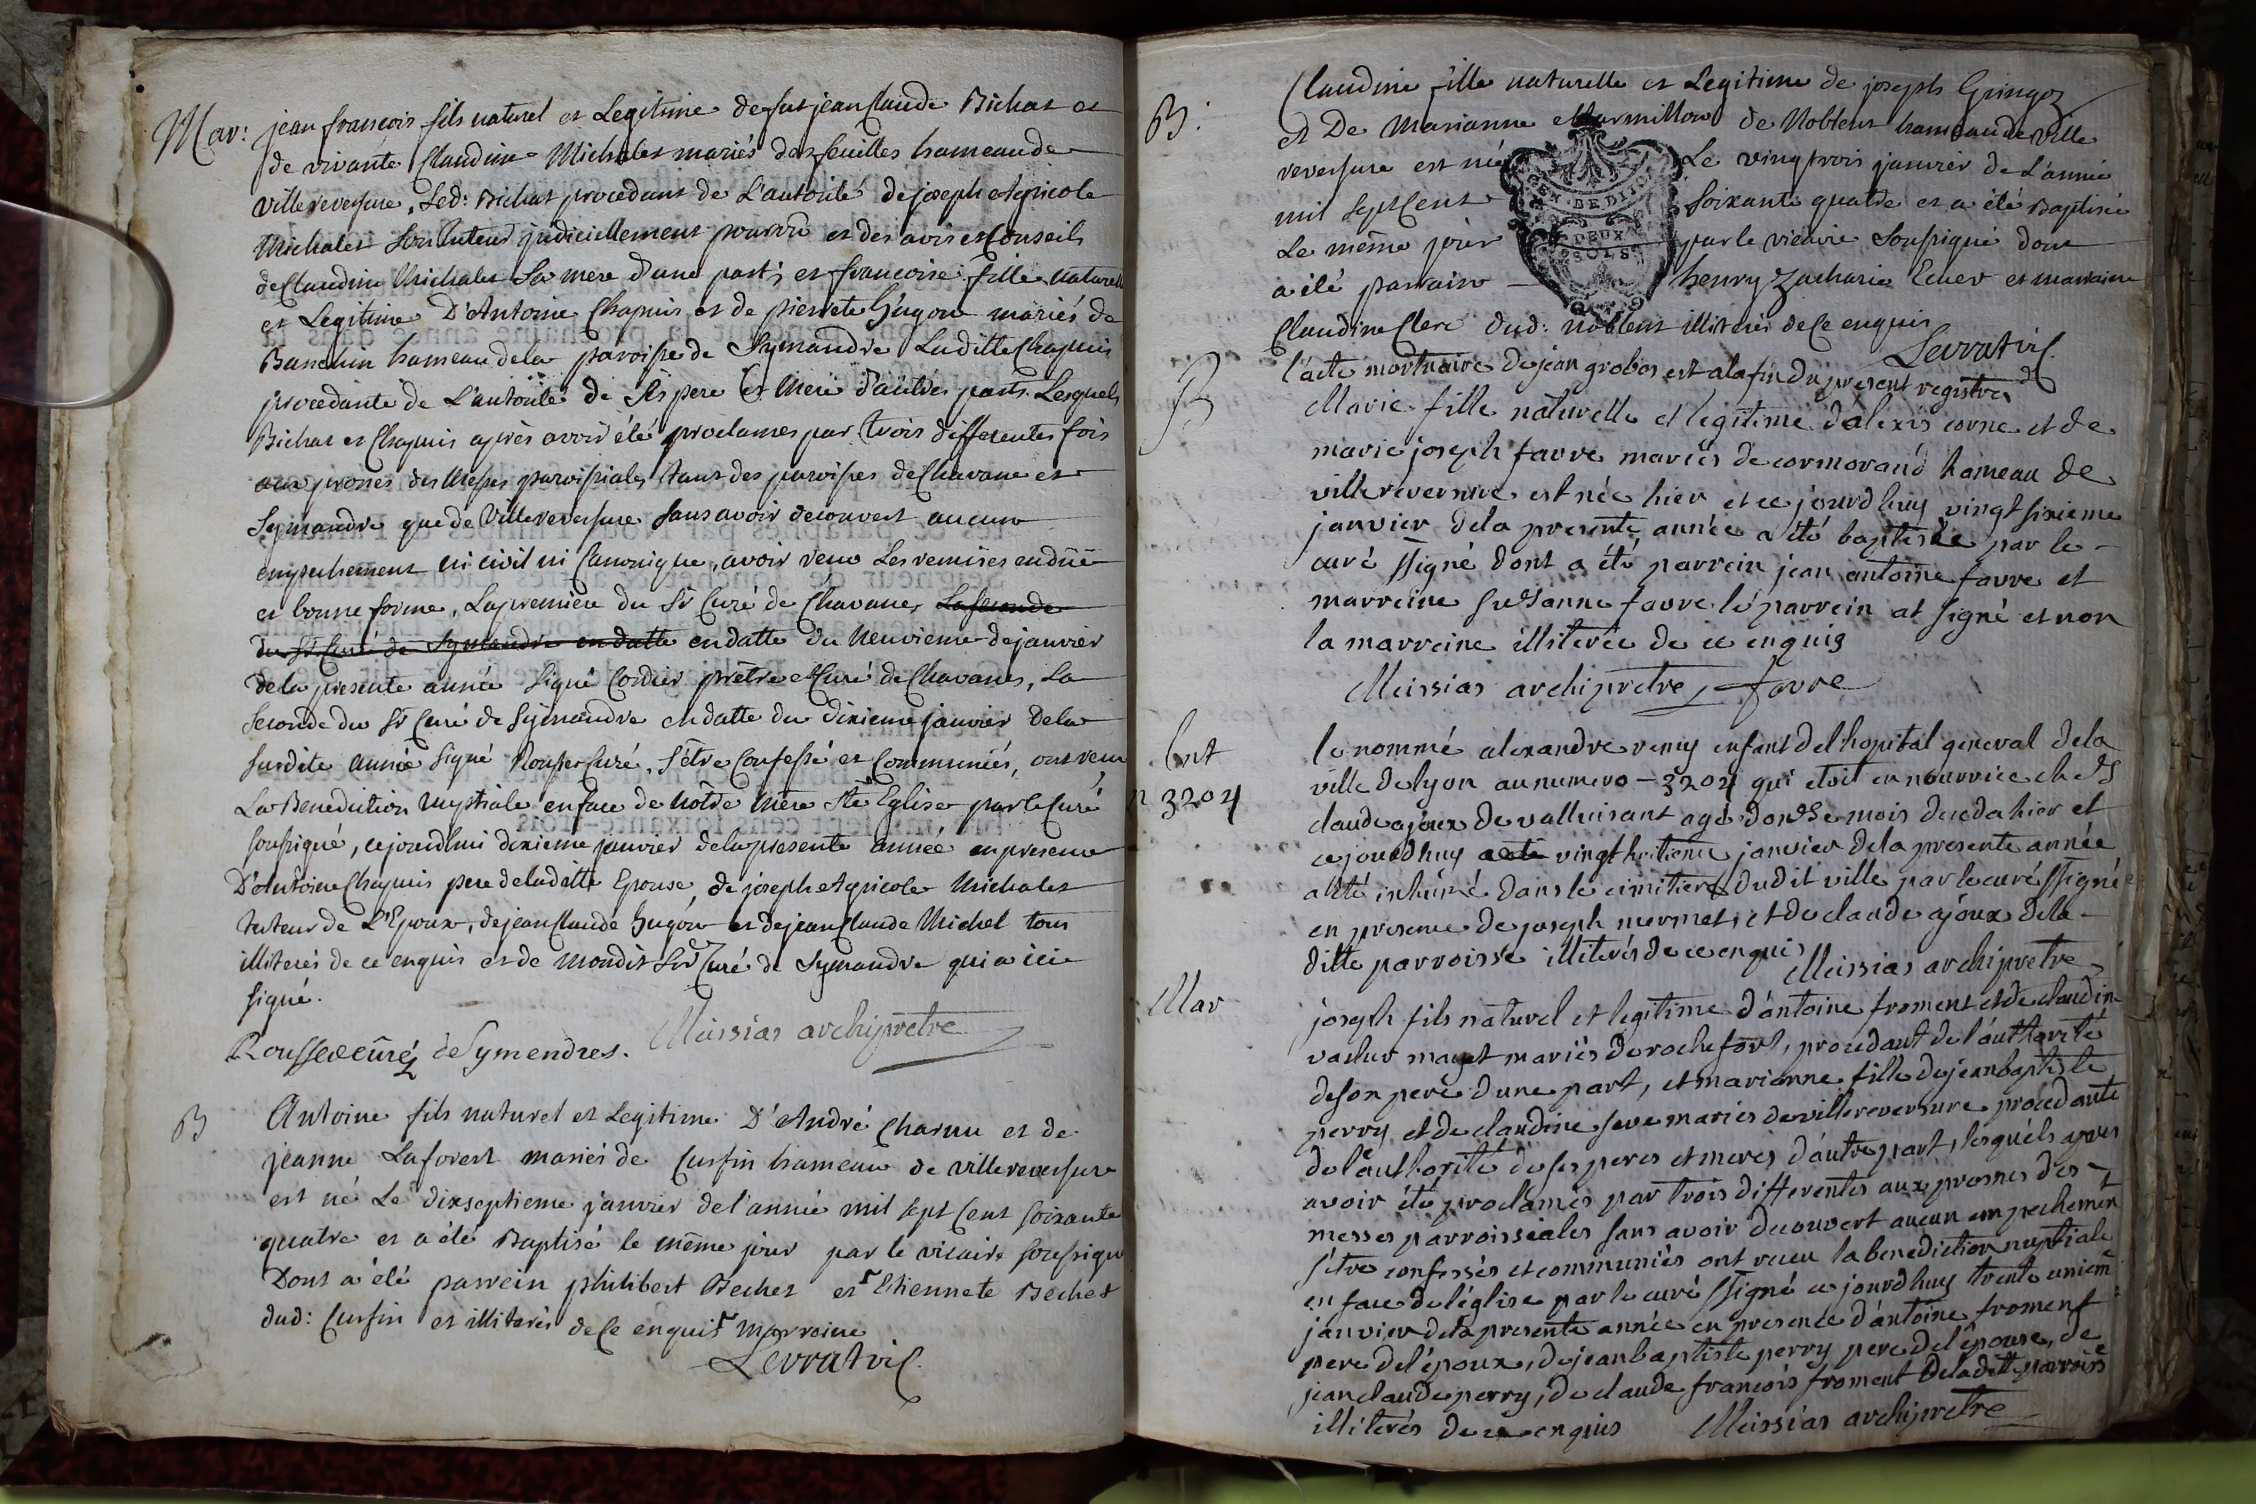 Mar: jean francois fils naturel et Legitime de fut jean Claude Bichat et
de vivante Claudine Michalet mariés des feuilles hameau de
villereversure, Led: Bichat procedant de L'autorité de joseph Agricole
Michalet son tuteur judiciellement pourvû et des avis et Conseils
de Claudine Michalet Sa mere d'une part; et francoise fille naturelle
et Legitime D'Antoine Chapuis et de pierrete Hugon mariés de
Banchin hameau de la paroisse de Symandre Laditte Chapuis
procedante de L'autorité de Ses pere et Mere d'autres parts. Lesquels
Bichat et Chapuis après avoir été proclames par trois differentes fois
aux prônes des Messes paroissiales tant des paroisses de Chavane et
Symandre que de Villereversure sans avoir decouvert aucun
empechement ni civil ni Canonique, avoir veu Les remises en dûë
et bonne forme, La premiere du Sr Curé de Chavanes La seconde
du Sr Curé de Symandre en datte en datte du Neuvieme de janvier
de la presente année Signé Cordier prêtre et Curé de Chavanes, La
Seconde du Sr Curé de Symandre en datte du dixieme janvier De la
susdite année Signé Rousset Curé, S'être Confessé et Communiés, ont recu
La Benediction Nuptiale en face de Nôtre Mère Ste Eglise par le Curé
soussigné, cejourd'hui dixieme janvier de la presente année en presence
D'Antoine Chapuis pere de laditte Epouse, de joseph Agricole Michalet
tuteur de L'Epoux, de jean Claude Hugon et de jean Claude Michel tous
illiterés de ce enquis et de mondit Sr Curé de Symandre qui a icie
signé.
Rousset curé de Symendres. Meissias archiprêtre
B Antoine fils naturel et Legitime D'André Charnu et de
jeanne Laforest mariés de Cursin hameau de villereversure
est né Le dixseptieme janvier de l'année mil sept Cent soixante
quatre et a été Baptisé le même jour par le vicaire soussigné
Dont a été parrein philibert Bechet et Etiennete Bechet
dud: Cursin et illiterés de Ce enquis marraine
Levrat vic.
B: Claudine fille naturelle et Legitime de joseph Gringoz
et De Marianne Marmillon de Noblens hameau de ville
reversure est née Le vingt trois janvier de L'année
mil sept Cent soixante quatre et a été Baptisée
Le même jour par le vicaire soussigné dont
a été parrain henry Zacharie Ecuer et marraine
Claudine Clerc dud: Noblens illiterés de Ce enquis
GEN. DE DIJON
DEUX
SOLS
Levrat vic.
l'acte mortuaire de jean grobos est a la fin du present registre
B Marie fille naturelle et legitime d'alexis corne et de
marie joseph favre mariés de cormorand hameau de
villereversure est née hier et ce jourdhuy vingt sixieme
janvier de la presente année a été baptisée par le
curé ssigné dont a été parrein jean antoine favre et
marreine Susanne favre le parrein at signé et non
la marreine illiterée de ce enquis
Meissias archiprêtre favre
Ent le nommé alexandre remy enfant del hopital general de la
ville de lyon au numero 3204 qui etoit en nourrice chés
n 3204
claude ajoux de valluisant agé d'onse mois deceda hier et
ce jourdhuy vingt huitieme janvier de la presente année
a été inhumé dans le cimitiere du dit ville par le curé ssigné
en presence de joseph mermet et de claude ajoux de la
ditte parroisse illiterés de ce enquis
Meissias archiprêtre
Mar joseph fils naturel et legitime d'antoine froment et de claudine
vacher mayet mariés de rochefort, procedant de l'authorité
de son pere d'une part, et marianne fille de jean baptiste
perry et de claudine seve mariés de villereversure procedante
de l'authorité de ses peres et meres d'autre part, lesquels apres
avoir été proclamés par trois differentes aux prosnes des
messes parroissiales sans avoir decouvert aucun empechement
s'être confessés et communiés ont receu la benediction nuptiale
en face de l'église par le curé ssigné ce jourdhuy trente unieme
janvier de la presente année en presence d'antoine froment
pere de l'époux, de jean baptiste perry pere de l'épouse, de
jean claude perry, de claude francois froment de la ditte parroisse
illiterés de ce enquis Meissias archiprêtre